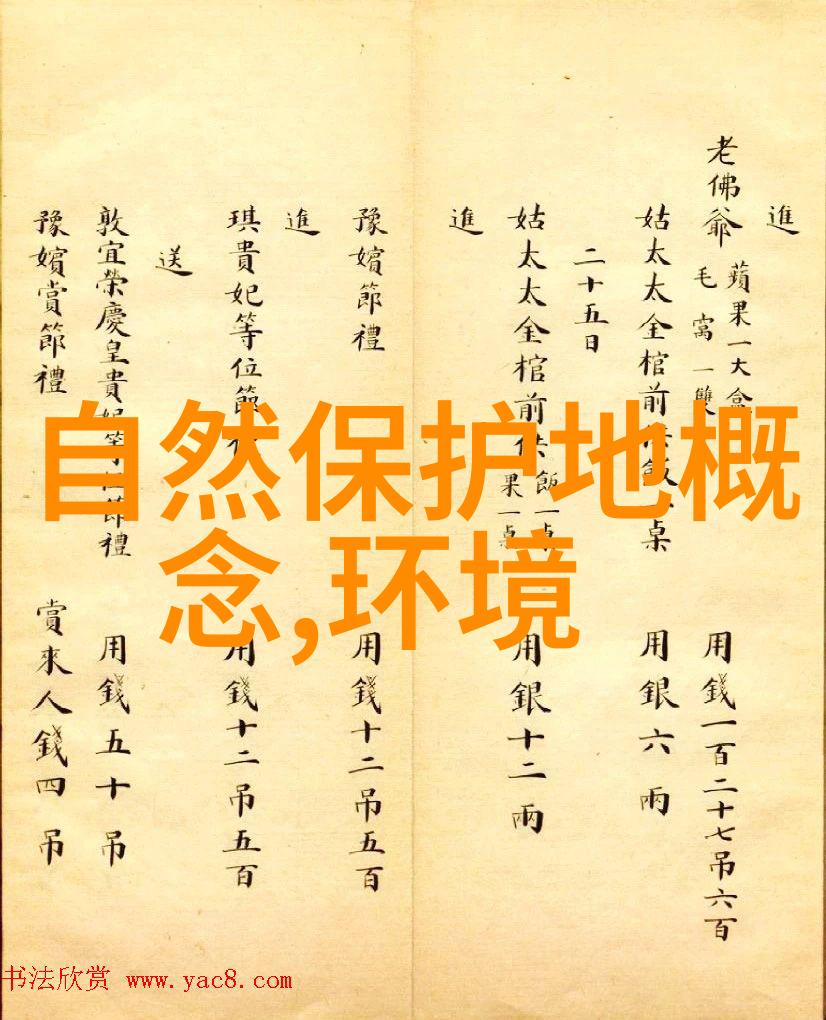 進
老佛爺 蘋果一大盒
毛窩一雙 用錢一百二十七吊六百
姑太太金棺前供飯一桌 用銀六兩
二十五日
姑太太金棺前供飯一桌
果一桌 用銀十二兩
進
豫嬪節禮 用錢十二吊五百
進
琪貴妃等位節 用錢十二吊五百
送
敦宜榮慶皇貴妃等位節禮 用錢五十吊
豫嬪賞節禮 賞來人錢四吊
自然保护地概
念,环境
书法欣赏 www.yac8.com